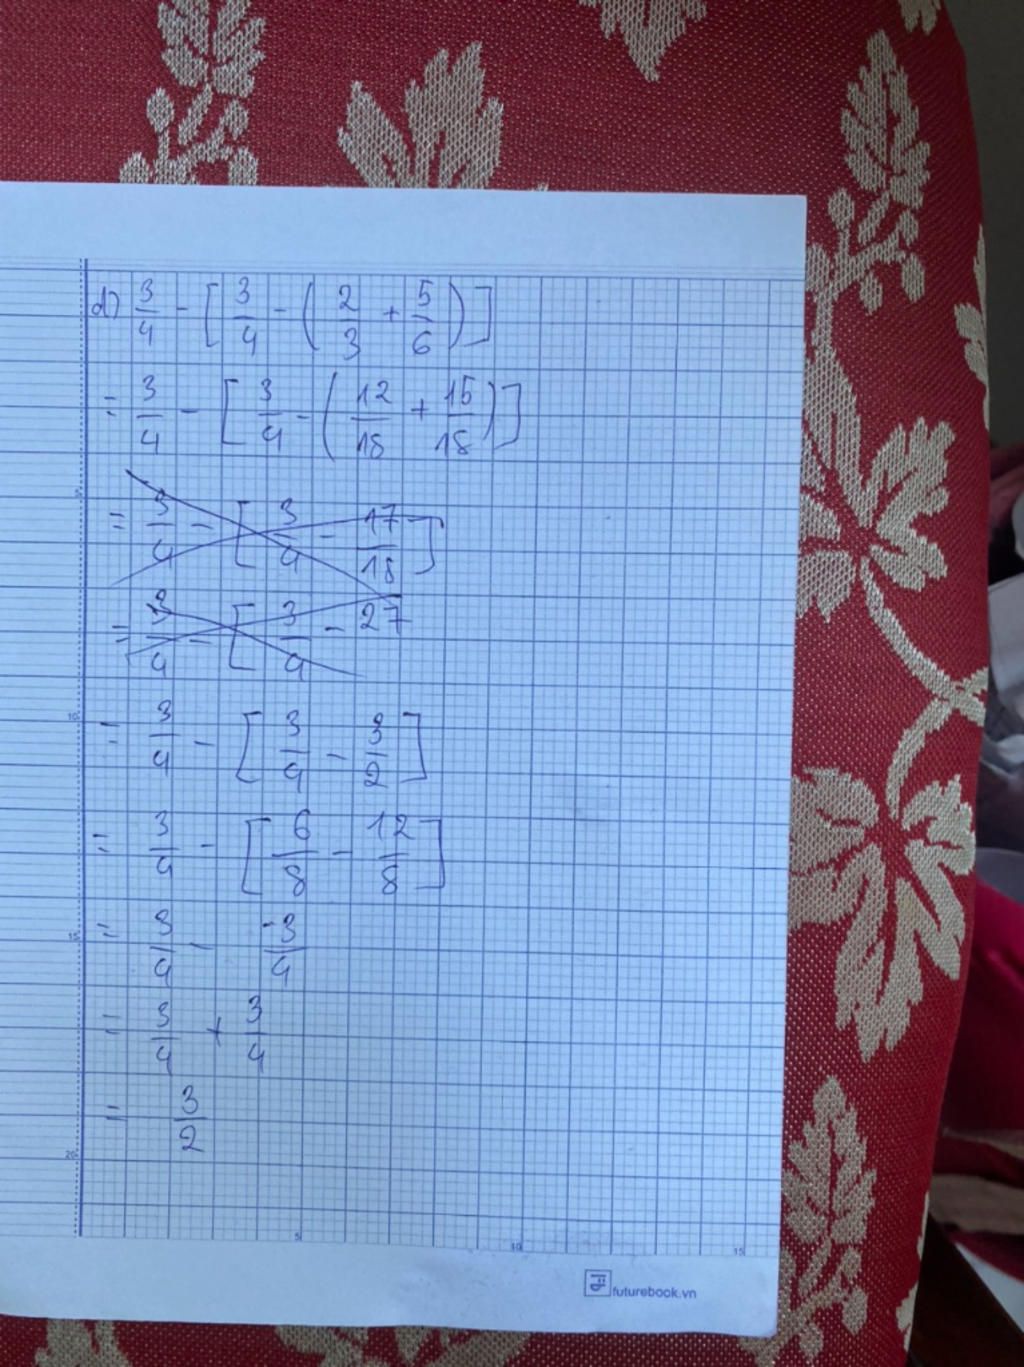 d) 3/4 - [3/4 - (2/3 + 5/6)]
= 3/4 - [3/4 - (12/18 + 15/18)]
5
= 3/4 - [3/4 - 17/18]
= 3/4 - [3/4 - 27
10
= 3/4 - [3/4 - 3/2]
= 3/4 - [6/8 - 12/8]
15
= 3/4 - -3/4
= 3/4 + 3/4
= 3/2
20
5 10 15
futurebook.vn